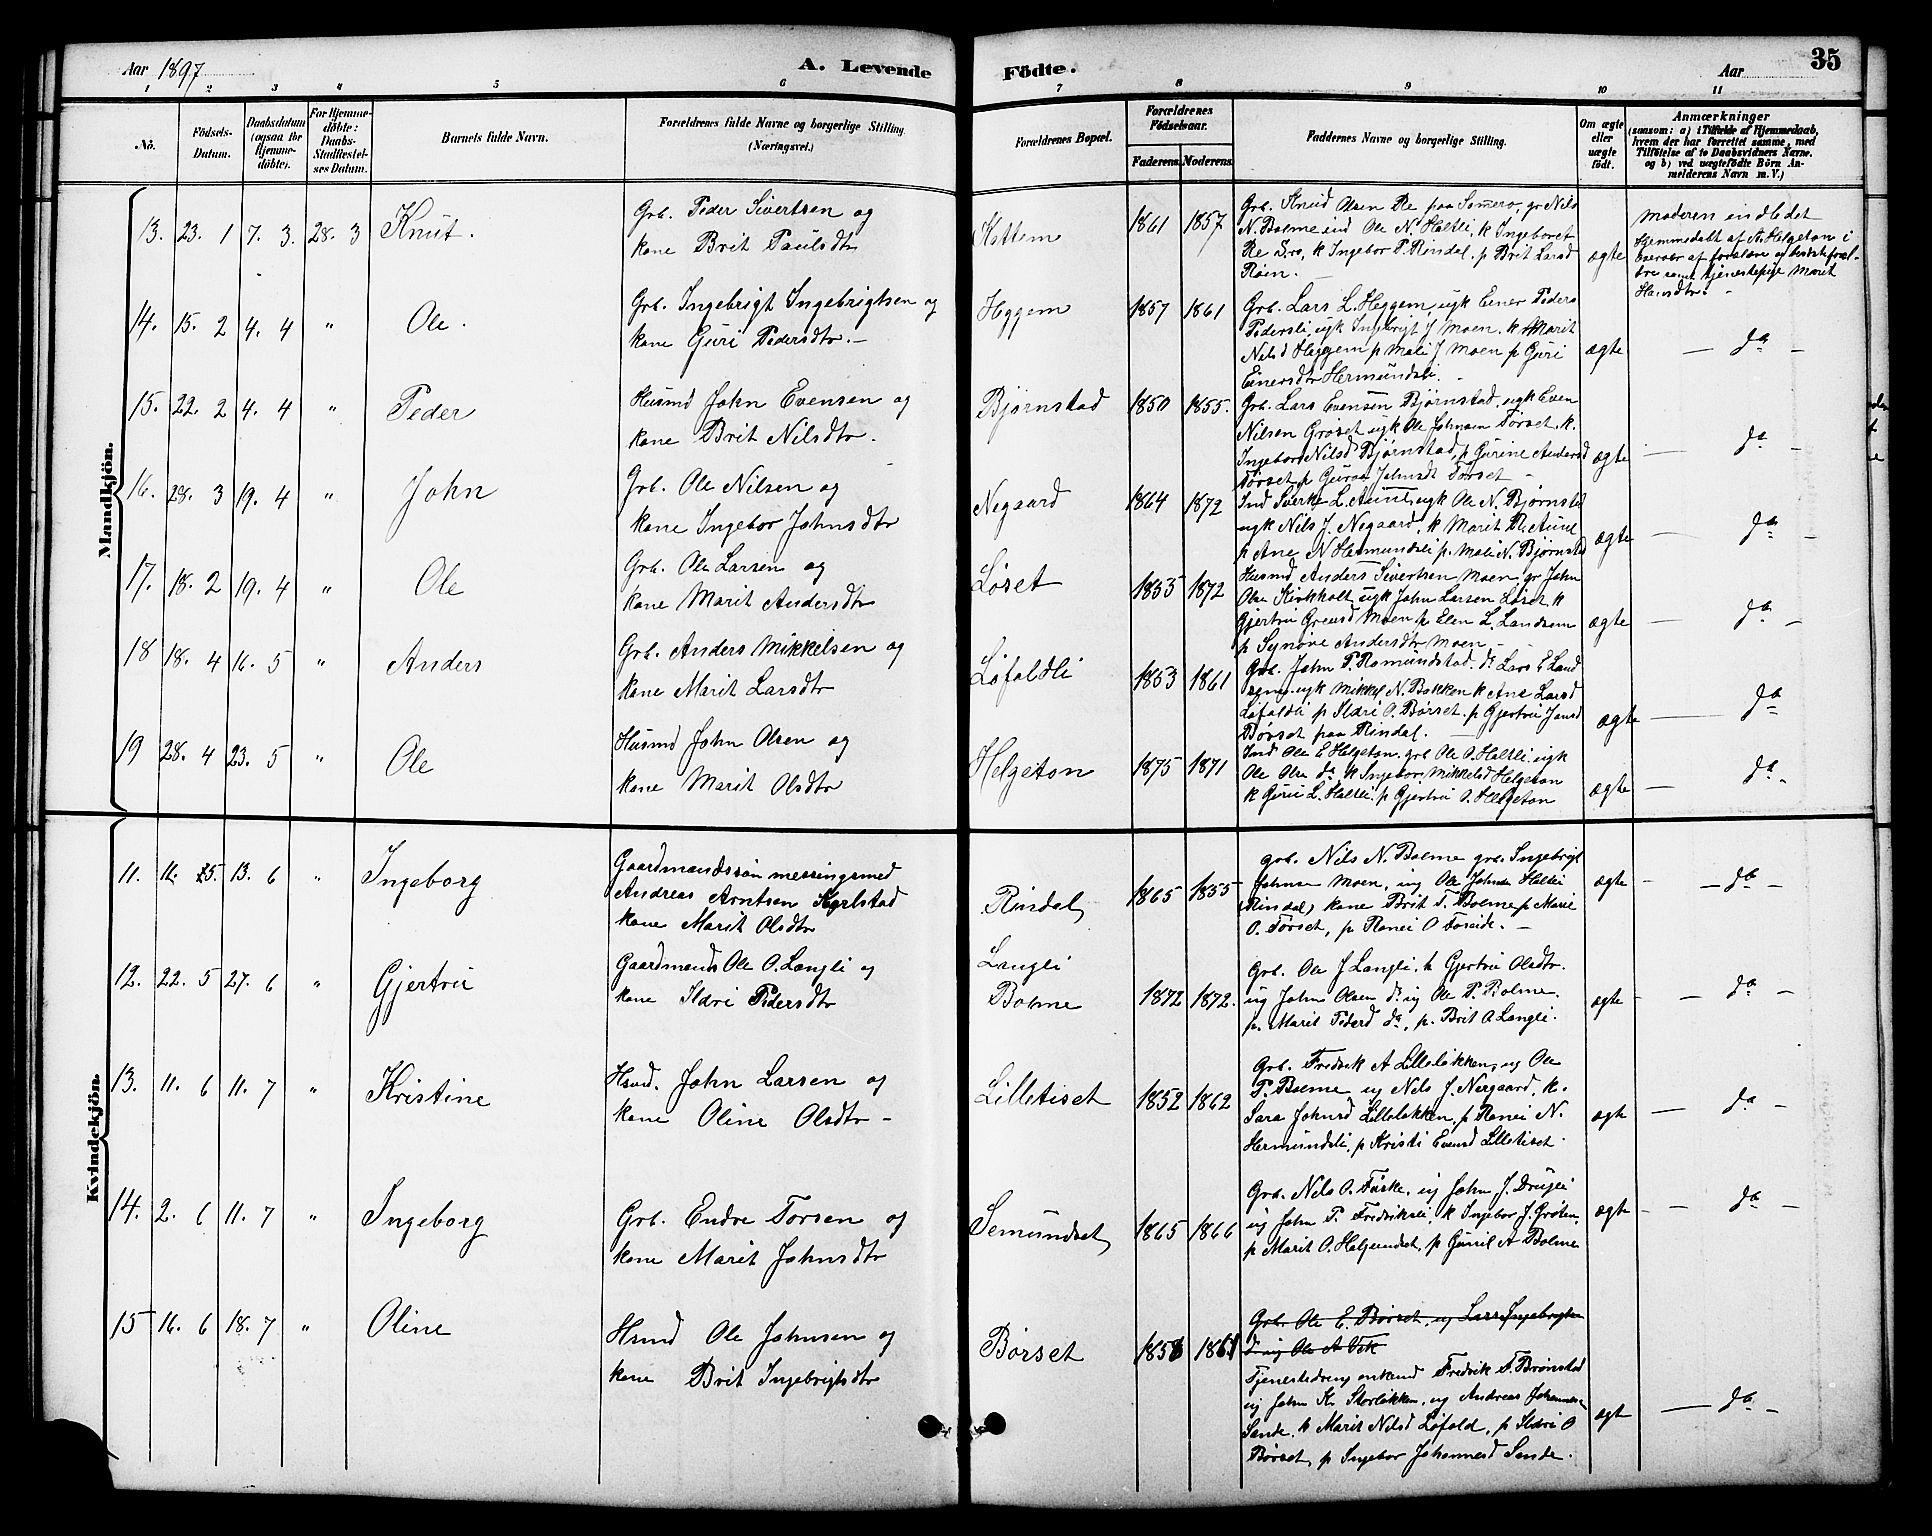 Aar 1897
A. Levende
Födte.
Aar
35
1 2 3 4 5 6 7 8 9 10 11
No.
Födsels-
Datum.
Daabsdatum
(ogsaa for
Hjemme-
döbte).
For Hjemme-
döbte:
Daabs-
Stadfæstel-
ses Datum.
Barnets fulde Navn.
Forældrenes fulde Navne og borgerlige Stilling
(Næringsvei.)
Forældrenes Bopæl.
Forældrenes
Födselsaar.
Faderens.
Moderens.
Faddernes Navne og borgerlige Stilling.
Om ægte
eller
uægte
födt.
Anmærkninger
(saasom: a) i Tilfælde af Hjemmedaab,
hvem der har forrettet samme, med
Tilföielse af to Daabsvidners Navne.
og b) ved uægtefödte Börn An-
melderens Navn m. V.)
Mandkjön.
13. 23. 1 7. 3. 28. 3 Knut.
Grb. Peder Sivertsen og
kone Brit Paulsdtr
Kattem 1861 1857
Grb. Knud Olsen Re paa Somero, gr Nils
N. Bolme ind Ole N. Haltli, k Ingeboret
Re S.ro, k Ingebor P. Rindal, p Brit Larsd
Røen.
ægte
Moderen indledet
Hjemmedøbt af A. Helgeton i
Overvær af forældre og bedsteforæl-
dre samt tjenestepige Marit
Hansdtr.
14. 15. 2 4. 4 " Ole.
Grb. Ingebrigt Ingebrigtsen og
kone Guri Pedersdtr.
Heggem 1857 1861
Grb. Lars L. Heggem, ugk Einer Peders
Pedersli ugk Ingebrigt J Moen. k Marit
Nilsd Heggem p Mali J Moen p Guri
Einersdtr Hermundsli.
ægte — da —
15. 22. 2 4. 4 " Peder
Husmd John Evensen og
kone Brit Nilsdtr.
Bjørnstad 1850 1855.
Grb. Lars Evensen Bjørnstad, ugk Even
Nilsen Groset ugk Ole Johnsen Torset, k.
Ingebor Nilsd Bjørnstad, p Gurine Andersd
Torset p Guroe Johnsdt Torset
ægte — da —
16. 28. 3 19. 4 " John
Grb. Ole Nilsen og
kone Ingebor Johnsdtr
Negaard 1864 1872
Ind Sverke L. Aune, ugk Ole N. Bjørnstd
ugk Nils J. Negaard, k Marit Aune
p Ane N Hermundsli p. Mali N. Bjørnstad
ægte — da —
17. 18. 2 19. 4 " Ole
Grb. Ole Larsen og
kone Marit Andersdtr
Løset 1853 1872
Husmd Anders Sivertsen Moen, gr John
Olse Kirkholt ugk John Larsen Løset k
Gjertru Greusd Moen p Elen L. Landsem
p Synøve Andersdtr Moen
ægte — da —
18 18. 4 16. 5 " Anders
Grb. Anders Mikkelsen og
kone Marit Larsdtr
Løfaldli 1853 1861
Grb. John P. Romundstad do Lars E Land
sem ugk Mikkel N. Bakken k Ane Larsd
Løfaldli p Ildri O. Børset. p Gjertru Jonsd
Børset paa Rindal.
ægte — da
19 28. 4 23. 5 " Ole
Husmd John Olsen og
kone Marit Olsdtr
Helgeton 1875 1871
Ind Ole E Helgeton grb Ole O. Haltli ugk
Ole Olse da k Ingebor Mikkelsd Helgeton
k Guri L. Haltli p Gjertru O. Helgeton
ægte — da.
Kvindekjön.
11. 11. 5. 13. 6 " Ingeborg
Gaardmandssøn messingsmed
Andreas Arntsen Karlstad
kone Marit Olsdtr
Rindal 1865 1855
grb. Nils N. Bolme grb. Ingebrigt
Johnse Moen, ug Ole Johnse Haltli
(Rindal) kone Brit T. Bolme p Marie
O. Torset, p. Ranei O Foseide.
ægte — da —
12. 22. 5 27. 6 " Gjertru
Gaardmands Ole O. Langli og
kone Ildri Pedersdtr
Langli
Bolme 1872 1872.
Grb. Ole J Langli, k Gjertru Olsdtr.
ug John Olsen do ug Ole P. Bolme.
p. Marit Pedersd da, p. Brit O Langli.
ægte — da —
13. 11. 6 11. 7 " Kristine
Hsmd. John Larsen og
kone Oline Olsdtr
Lilletiset 1852 1862
Grb. Fredrik A Lilleløkken, ug Ole
P. Bolme ug Nils J. Nergaard, k.
Sara Johnsd Lilleløkken, p Ranei N.
Hermundsli, p Kristi Evensd Lilletiset.
ægte — da —
14. 2. 6 11. 7 " Ingeborg
Grb. Endre Torsen og
kone Marit Johnsdtr
Semundset 1865 1866
Grb. Nils O. Fiske, ug John J. Drugli
ug John P. Fredriksli, k Ingebor J. Grøten,
p Marit O. Halgundset, p Guril A Bolme
ægte — da —
15 16. 6 18. 7 " Oline
Hsmd Ole Johnsen og
kone Brit Ingebrigtsdtr
Børset 1856 1861
Grb. Ole E. Børset, ug Lars Ingebrigtsen
d. ug Ole A Vik
Tjenestedreng enkemd Fredrik F. Brønstad
ug John Kr Storløkken, ug Andreas Johannesen
Sande. k Marit Nilsd Løfald, p Ildri O
Børset, p Ingebor Johannesd Sande.
ægt — da —